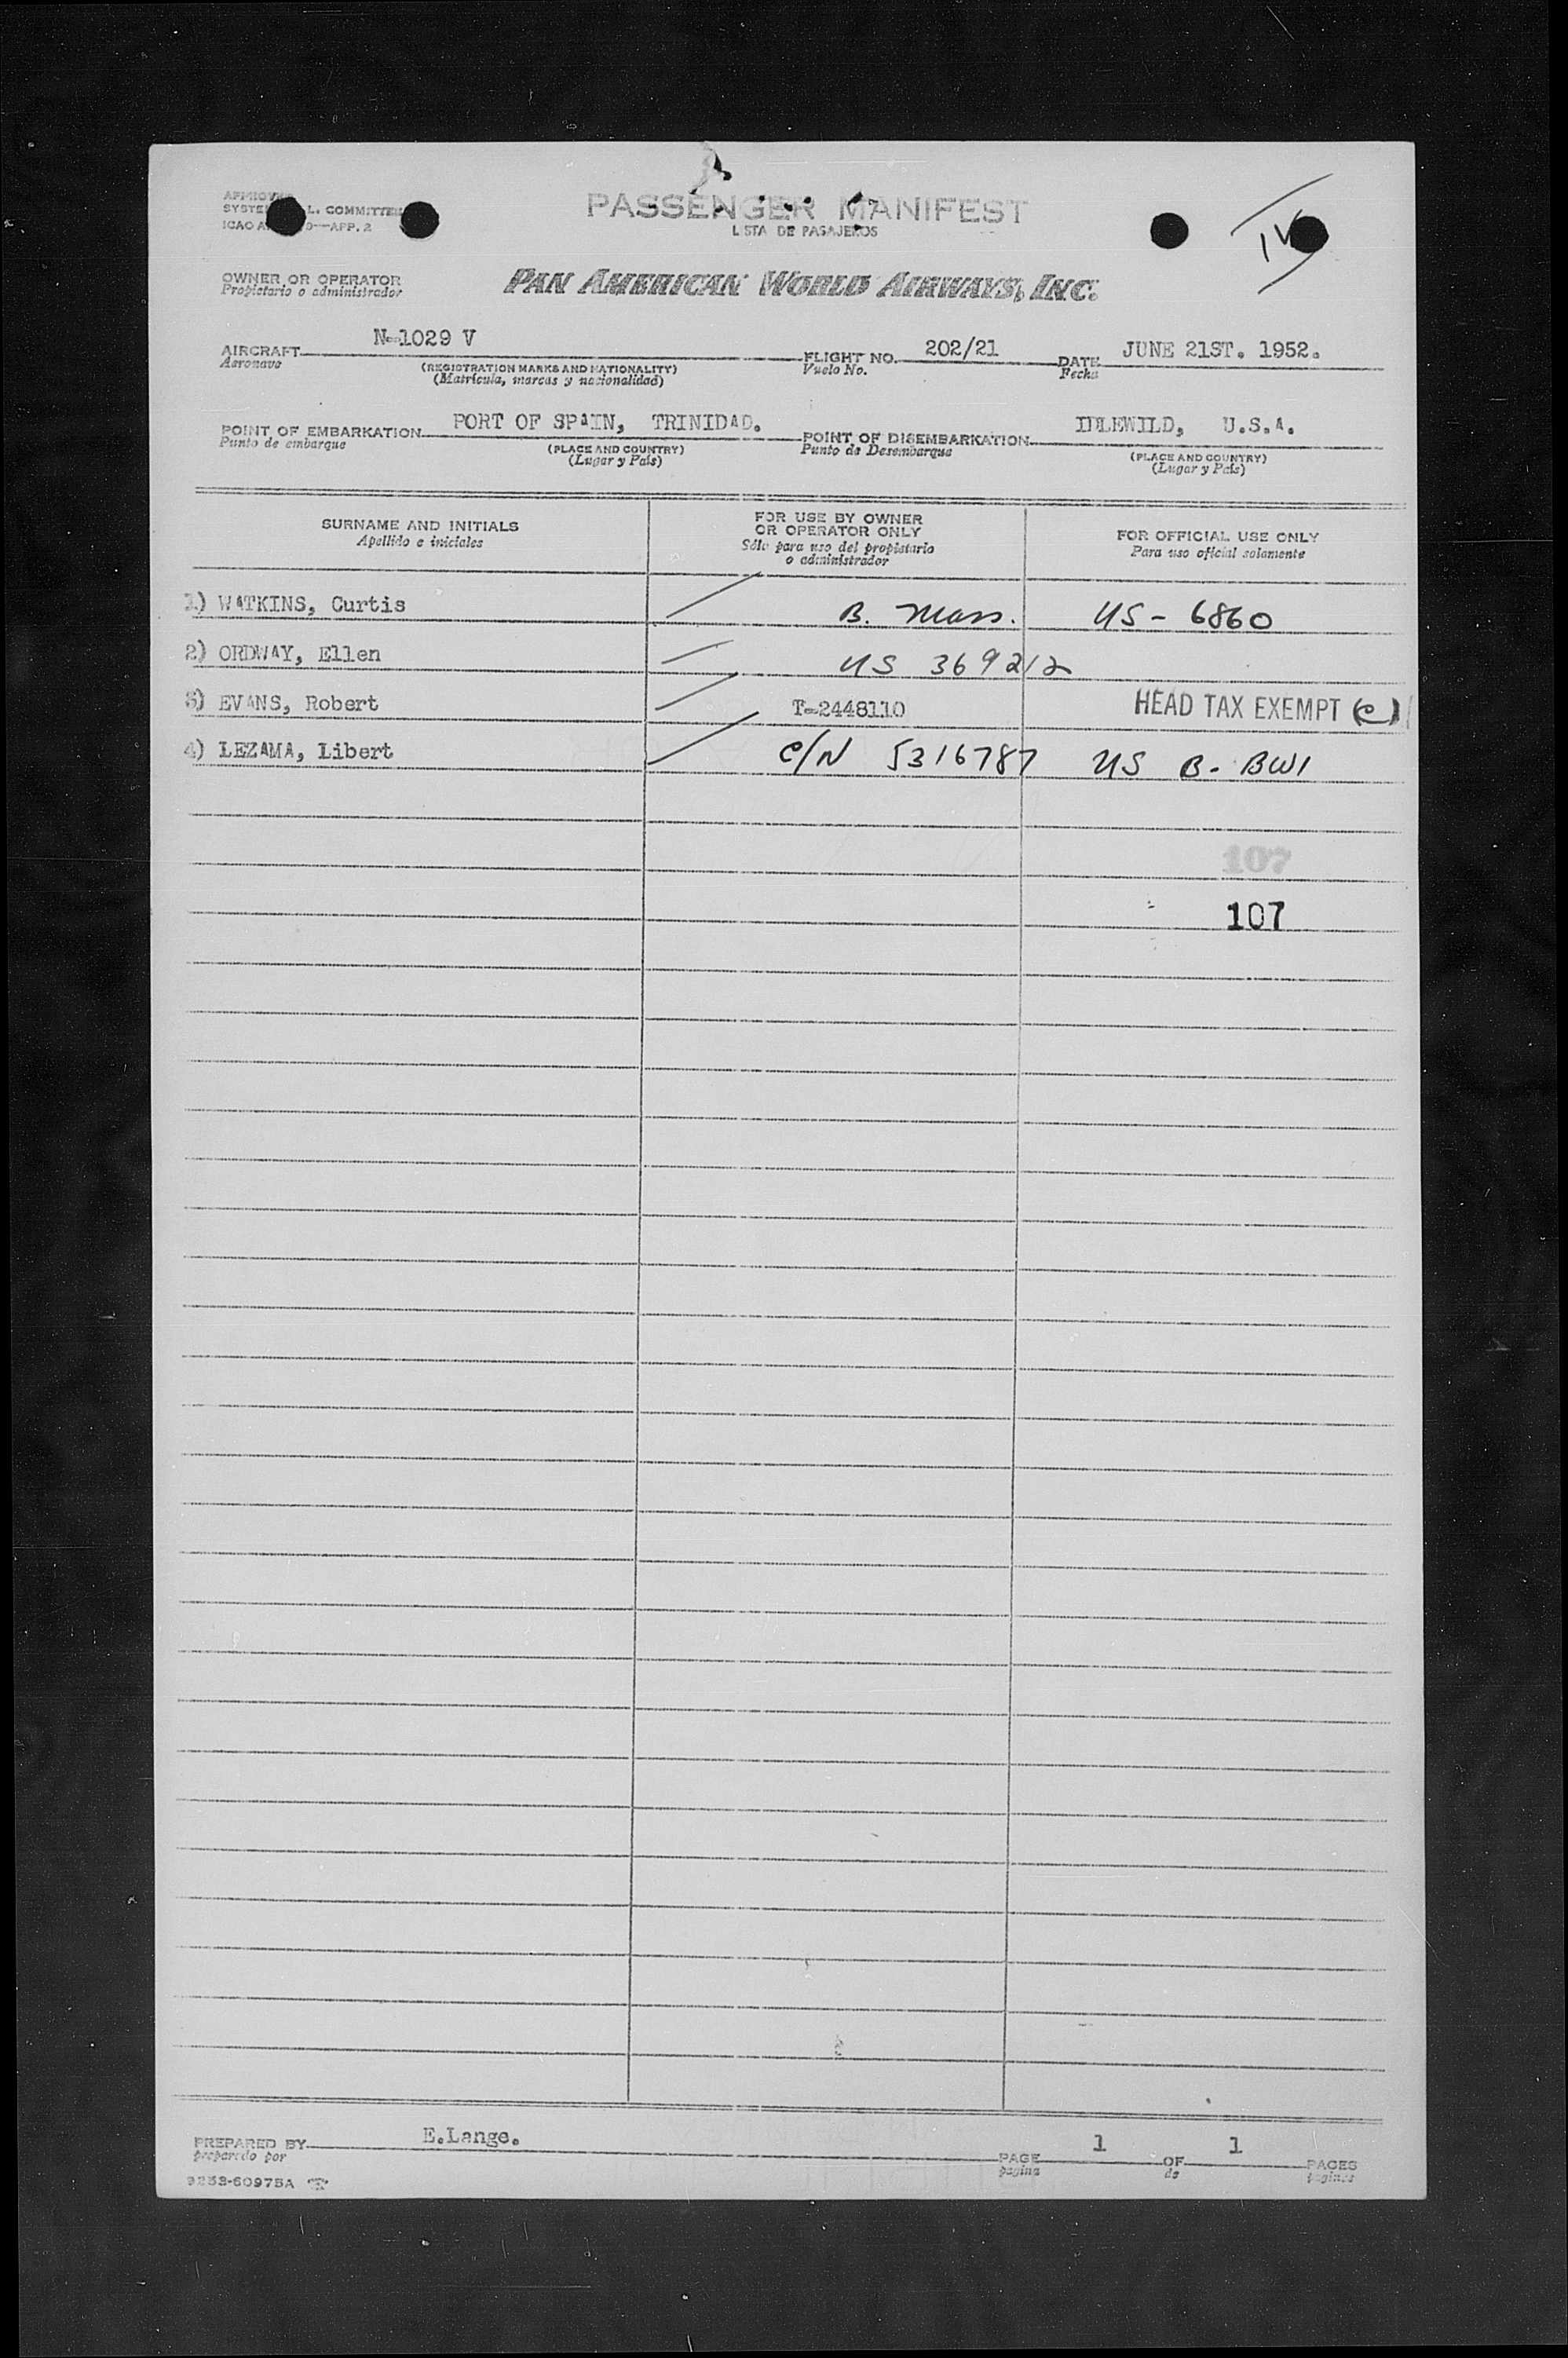 PASSENGER MANIFEST
LISTA DE PASAJEROS
L. COMMITTEE
APP. 2
IV
OWNER OR OPERATOR
Propietario o administrador
PAN AMERICAN WORLD AIRWAYS, INC.
AIRCRAFT N-1029 V FLIGHT NO. 202/21 DATE JUNE 21ST. 1952.
Aeronave (REGISTRATION MARKS AND NATIONALITY) Vuelo No. Fecha
(Matrícula, marcas y nacionalidad)
POINT OF EMBARKATION PORT OF SPAIN, TRINIDAD. POINT OF DISEMBARKATION IDLEWILD, U.S.A.
Punto de embarque (PLACE AND COUNTRY) Punto de Desembarque (PLACE AND COUNTRY)
(Lugar y País) (Lugar y País)
SURNAME AND INITIALS
Apellido e iniciales
FOR USE BY OWNER
OR OPERATOR ONLY
Sólo para uso del propietario
o administrador
FOR OFFICIAL USE ONLY
Para uso oficial solamente
1) WATKINS, Curtis B. Mass. US - 6860
2) ORDWAY, Ellen US 369212
3) EVANS, Robert T-2448110 HEAD TAX EXEMPT (C)
4) LEZAMA, Libert C/N 5316787 US B. BWI
107
107
PREPARED BY E.Lange.
preparado por
PAGE 1 OF 1 PAGES
página de páginas
9253-60975A "T"